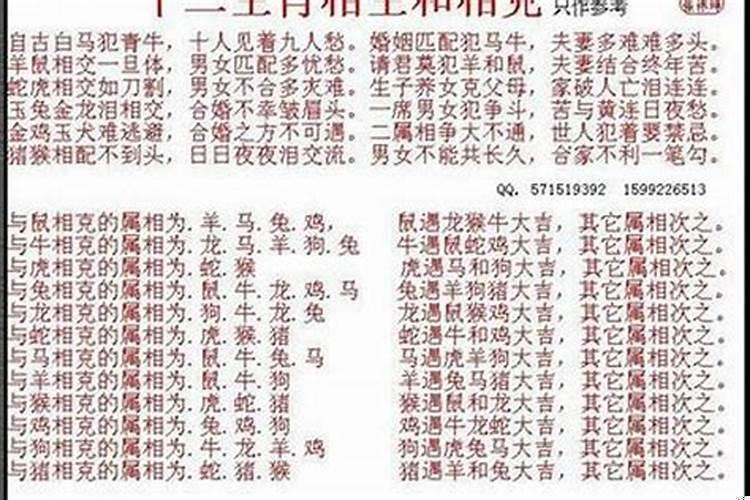 十二生肖相生和相克 只作参考
自古白马犯青牛，十人见着九人愁。婚姻匹配犯马牛，夫妻多难难多头。
羊鼠相交一旦休，男女匹配多忧愁。请君莫犯羊和鼠，夫妻结合终年苦。
蛇虎相交如刀割，男女不合多灾难。生子养女克父母，家破人亡泪连连。
玉兔金龙泪相交，合婚不幸皱眉头。一席男女犯争斗，苦与黄连日夜愁。
金鸡玉犬难逃避，合婚之方不可遇。二属相争大不通，世人犯着要禁忌。
猪猴相配不到头，日日夜夜泪交流。男女不能共长久，合家不利一笔勾。
QQ. 571519392 1599226513
与鼠相克的属相为.羊.马.兔.鸡, 鼠遇龙猴牛大吉，其它属相次之。
与牛相克的属相为.龙.马.羊.狗.兔 牛遇鼠蛇鸡大吉，其它属相次之。
与虎相克的属相为.蛇.猴 虎遇马和狗大吉，其它属相次之。
与兔相克的属相为.鼠.牛.龙.鸡.马 兔遇羊狗猪大吉，其它属相次之。
与龙相克的属相为.狗.牛.龙.兔 龙遇鼠猴鸡大吉，其它属相次之。
与蛇相克的属相为.虎.猴.猪 蛇遇牛和鸡大吉，其它属相次之。
与马相克的属相为.鼠.牛.兔.马 马遇虎羊狗大吉，其它属相次之。
与羊相克的属相为.鼠.牛.狗 羊遇兔马猪大吉，其它属相次之。
与猴相克的属相为.虎.蛇.猪 猴遇鼠和龙大吉，其它属相次之。
与鸡相克的属相为.兔.鸡.狗 鸡遇牛龙蛇大吉，其它属相次之。
与狗相克的属相为.牛.龙.羊.鸡 狗遇虎兔马大吉，其它属相次之。
与猪相克的属相为.蛇.猪.猴 猪遇羊和兔大吉，其它属相次之。